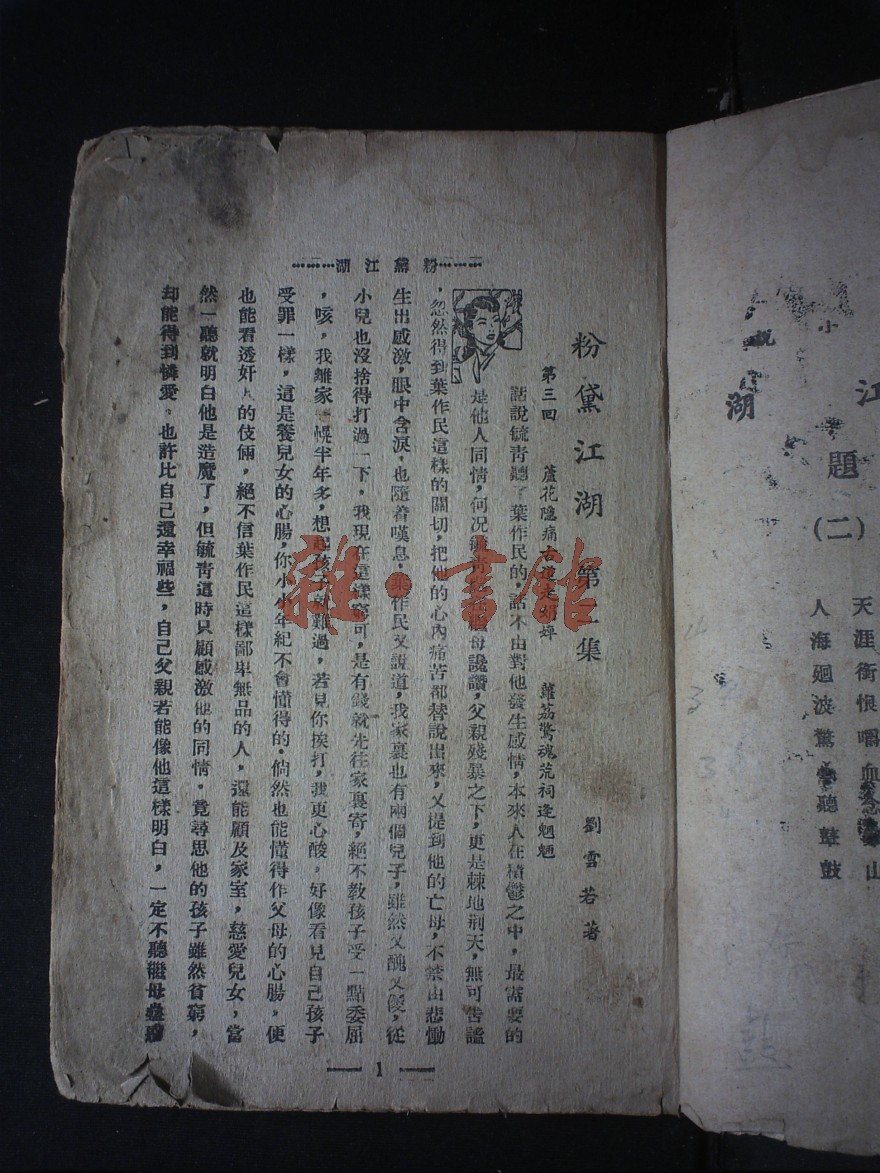 湖
江
小
題
(二)
天涯銜恨嚼血
山
人海廻波驚心聽鼙鼓
粉黛江湖
粉黛江湖 第二集
劉雲若著
第三回 蘆花隱痛古道走 婢 薜荔驚魂荒祠逢魍魎
話說毓靑聽了葉作民的話不由對他發生感情,本來人在積鬱之中,最需要的
是他人同情,何况毓靑 繼母讒讚,父親殘暴之下,更是棘地荆天,無可告謐
,忽然得到葉作民這樣的關切,把他的心內痛苦都替說出來,又提到他的亡母,不禁由悲慟
生出感激,眼中含淚,也隨着嘆息,葉作民又說道,我家裏也有兩個兒子,雖然又醜又傻,從
小兒也沒捨得打過一下,我現在這樣窮可,是有錢就先往家裏寄,絕不敎孩子受一點委屈
,咳,我離家一幌半年多,想起孩子就難過,若見你挨打,我更心酸,好像看見自己孩子
受罪一樣,這是養兒女的心腸,你小小年紀不會懂得的.倘然也能懂得作父母的心腸,便
也能看透奸人的伎倆,絕不信葉作民這樣鄙卑無品的人,還能顧及家室,慈愛兒女,當
然一聽就明白他是造魔了,但毓靑這時只顧感激他的同情,竟尋思他的孩子雖然貧窮,
却能得到憐愛,也許比自己還幸福些,自己父親若能像他這樣明白,一定不聽繼母
1
雜·書館